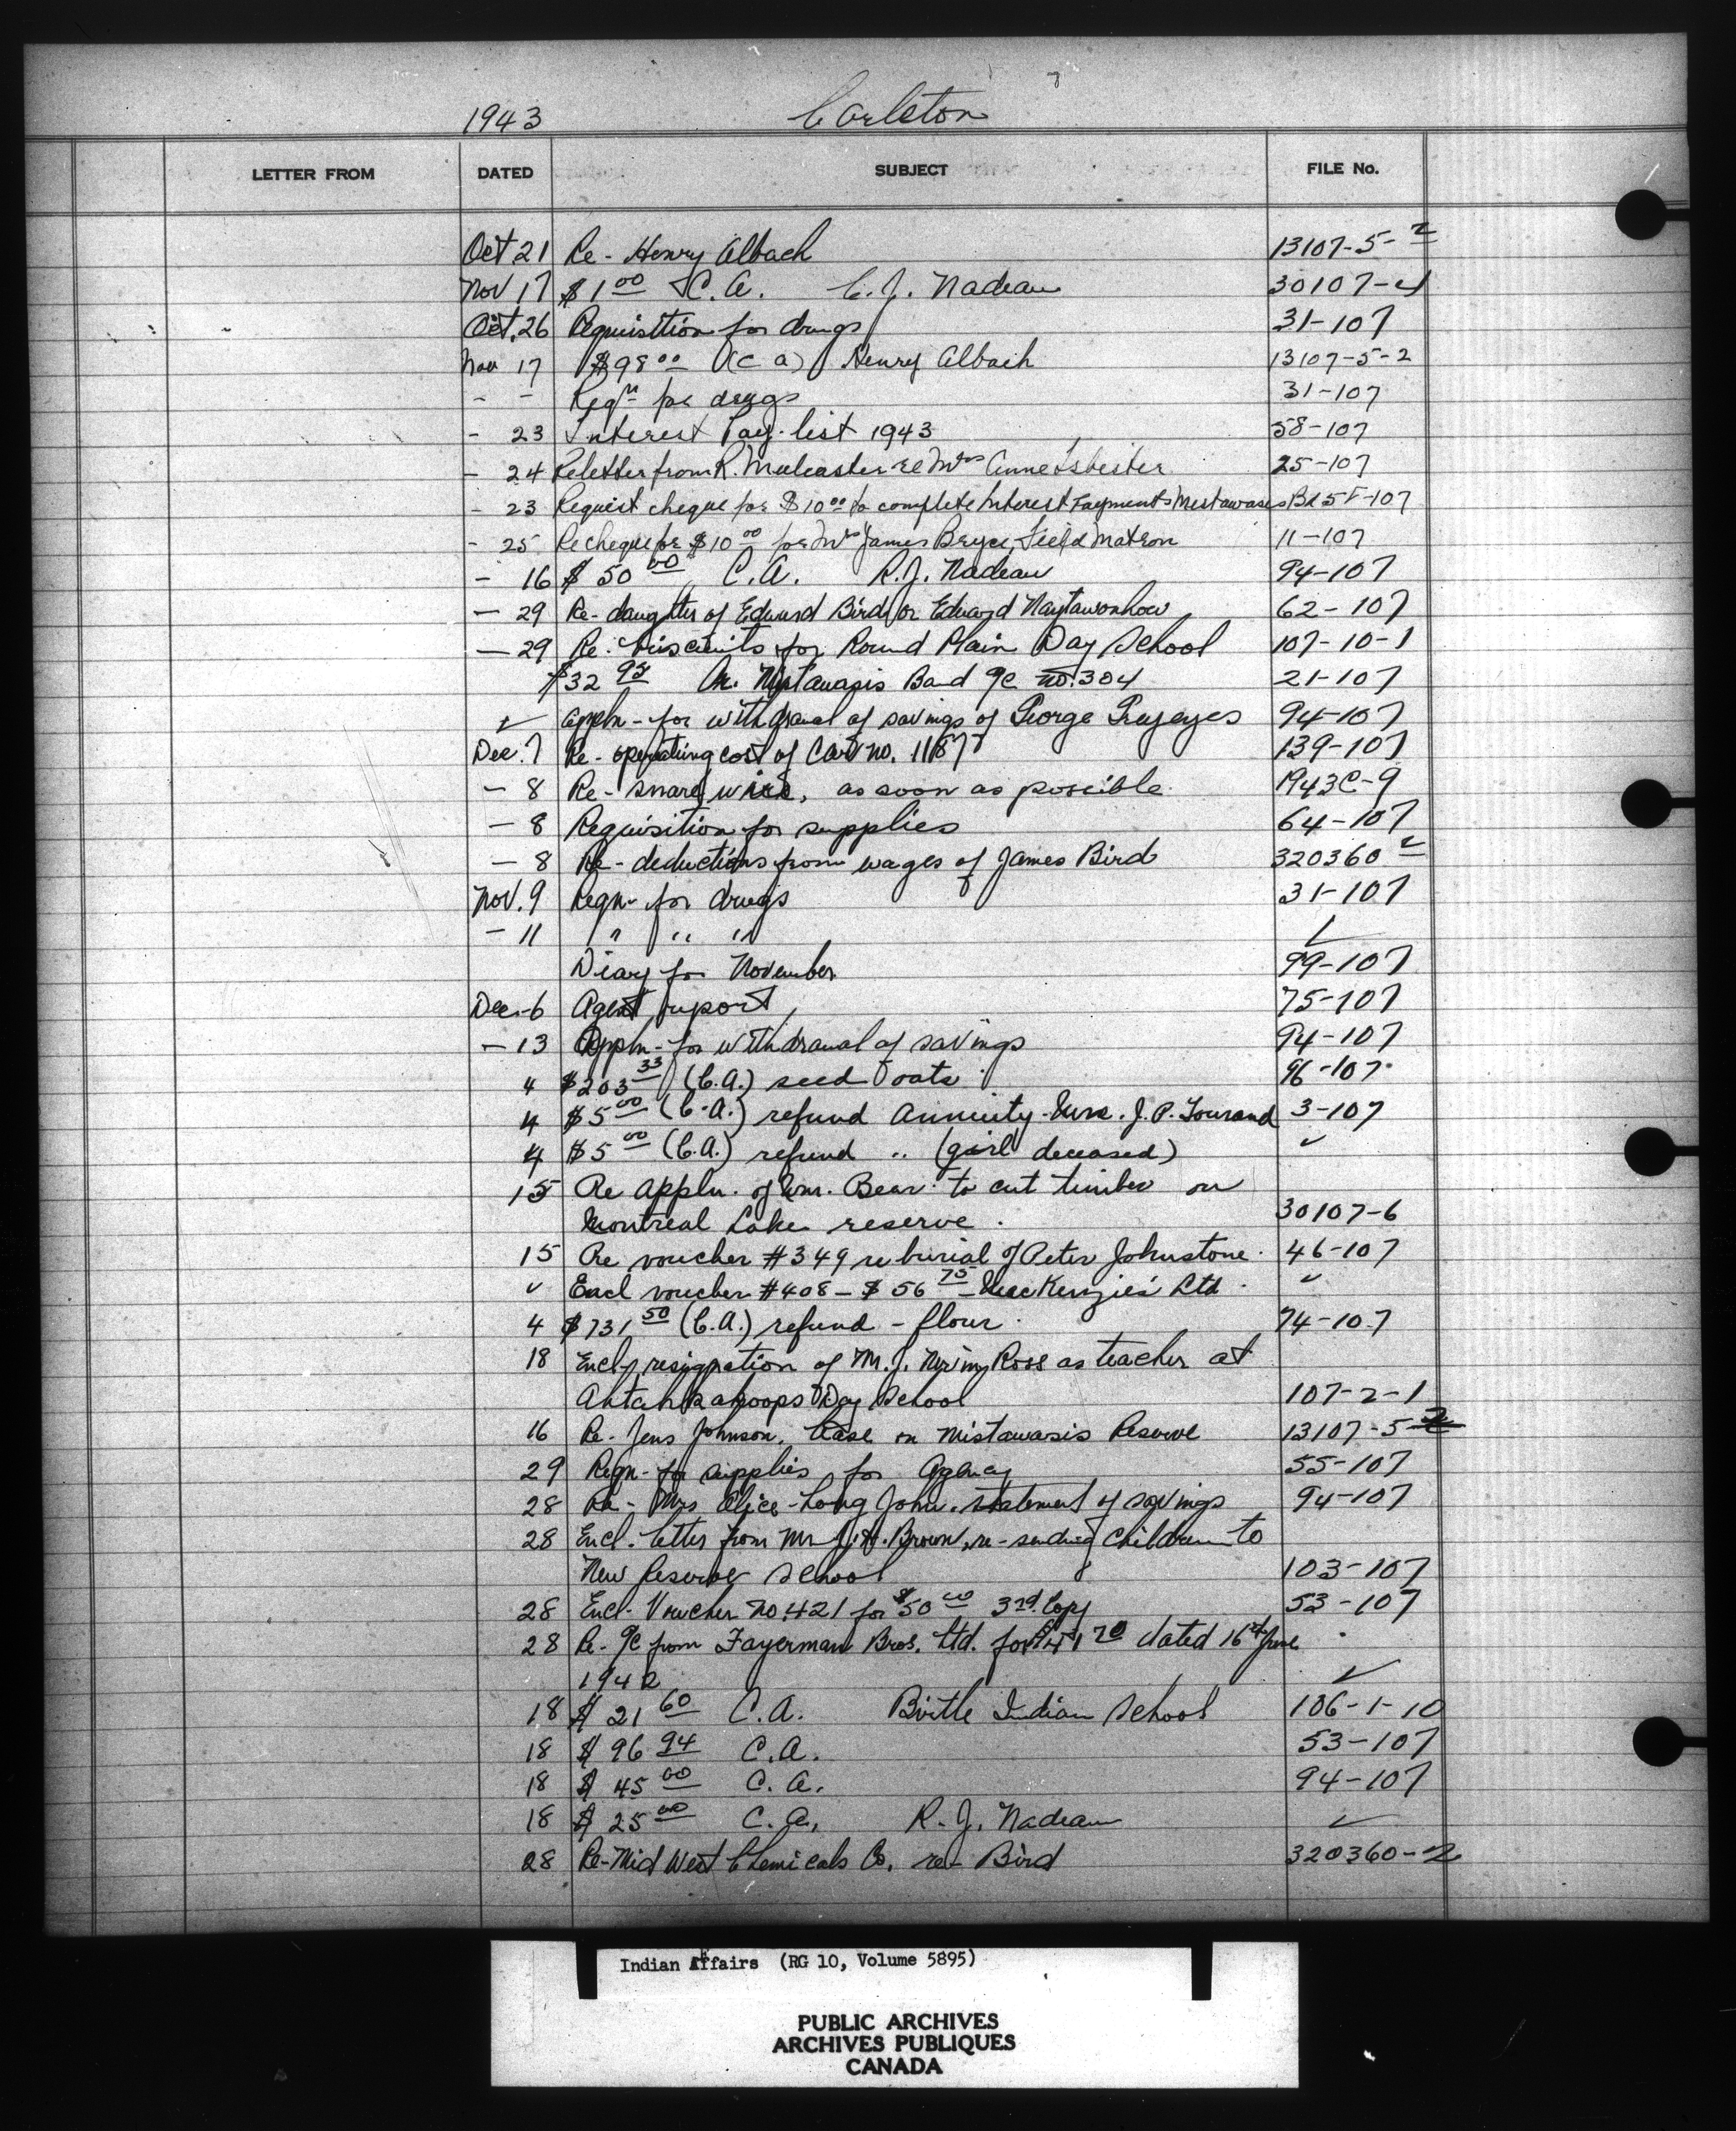 1943 Carleton
LETTER FROM DATED SUBJECT FILE No.
Oct 21 Re - Henry Albach 13107-5-2
Nov 17 $1 00 C.A. C. J. Nadeau 30107-4
Oct. 26 Requisition for drugs 31-107
Nov 17 $98 00 (C A) Henry Albach 13107-5-2
- - Reqn for drugs 31-107
- 23 Interest Pay-list 1943 58-107
- 24 Re letter from R. Mulcaster re Mrs Anne Isbister 25-107
- 23 Request cheque for $10 00 to complete Interest Payments Mistawasis Bd 58-107
- 25 Re cheque for $10 00 for Mrs James Bryce, Field Matron 11-107
- 16 $ 50 00 C.A. R.J. Nadeau 94-107
- 29 Re - daughter of Edward Bird or Edward Naytawonhow 62-107
- 29 Re. biscuits for Round Plain Day School 107-10-1
$32 95 Mistawasis Band no. 304 21-107
✓ Appln - for withdrawal of savings of George Greyeyes 94-107
Dec. 7 Re - operating cost of Car no. 11877 139-107
- 8 Re - snare wire, as soon as possible. 1943C-9
- 8 Requisition for supplies 64-107
- 8 Re - deductions from wages of James Bird 320360 2
Nov. 9 Reqn - for drugs 31-107
- 11 " " " ✓
Diary for November 99-107
Dec. 6 Agent report 75-107
- 13 Appln - for withdrawal of savings 94-107
4 $203 33 (C.A.) seed oats 96-107
4 $5 00 (C.A.) refund annuity - Mrs. J. P. Tourand 3-107
4 $5 00 (C.A.) refund " (girl deceased) ✓
15 Re appln. of Wm. Bear to cut timber on
Montreal Lake reserve. 30107-6
15 Re voucher #349 re burial of Peter Johnstone. 46-107
✓ Encl voucher #408 - $ 56 75 - MacKenzie's Ltd. ✓
4 $731 50 (C.A.) refund - flour. 74-107
18 Encl resignation of M. J. Ross as teacher at
Ahtahkahoops Day School 107-2-1
16 Re - Jens Johnson. Lease on Mistawasis Reserve 13107-5-2
29 Reqn - for supplies for Agency 55-107
28 Re - Mrs Alice Long John. statement of savings 94-107
28 Encl. letter from Mr J.H. Brown, re - sending children to
New Reserve School 103-107
28 Encl. Voucher No. 421 for $50 00 3rd. Copy 53-107
28 Re - from Fayerman Bros. Ltd. for $41 70 dated 16th June
1942 ✓
18 $ 21 60 C.A. Birtle Indian School 106-1-10
18 $ 96 94 C.A. 53-107
18 $ 45 00 C.A. 94-107
18 $ 25 00 C.A. R.J. Nadeau ✓
28 Re - Mid West Chemicals Co. re - Bird 320360-2
Indian Affairs (RG 10, Volume 5895)
PUBLIC ARCHIVES
ARCHIVES PUBLIQUES
CANADA